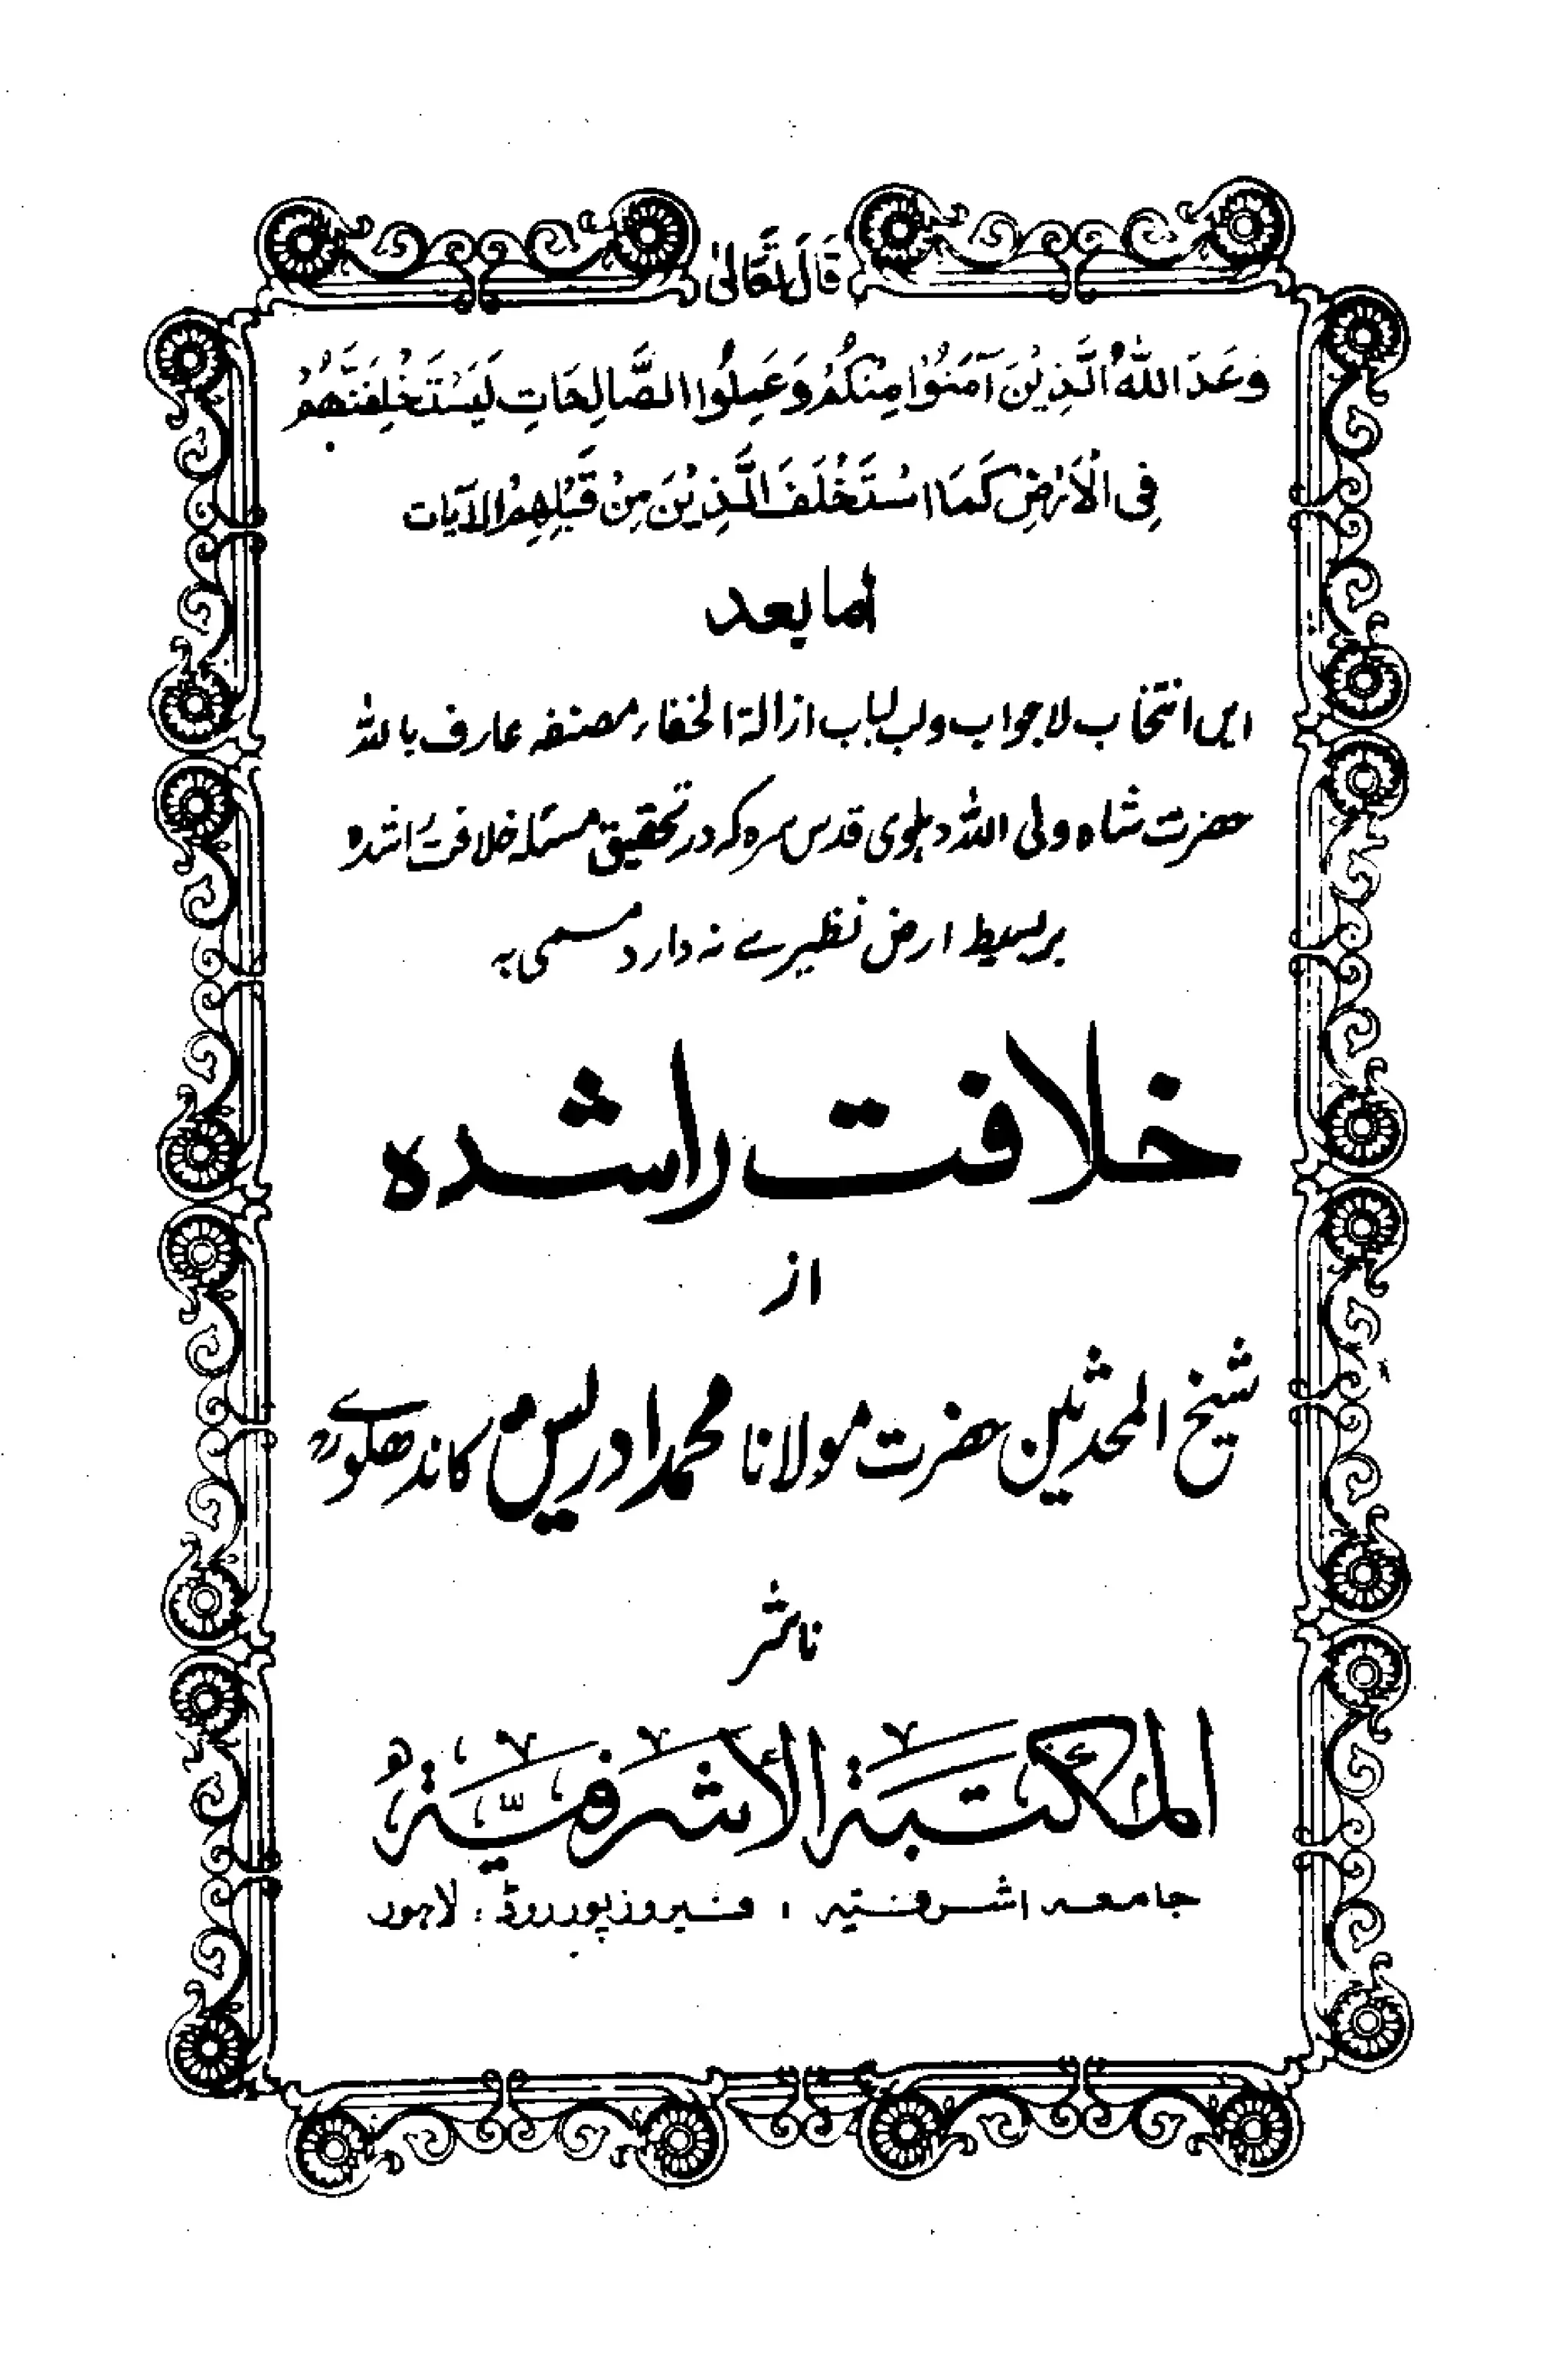 قَالَ تَعَالیٰ
وَعَدَ اللّٰہُ الَّذِیْنَ آمَنُوْا مِنْکُمْ وَعَمِلُوا الصَّالِحَاتِ لَیَسْتَخْلِفَنَّھُمْ
فِی الْاَرْضِ کَمَا اسْتَخْلَفَ الَّذِیْنَ مِنْ قَبْلِھِمُ الآیات
اما بعد
ایں انتخاب لاجواب و لب لباب ازالۃ الخفاء مصنفہ عارف باللہ
حضرت شاہ ولی اللہ دہلوی قدس سرہ کہ در تحقیق مسئلہ خلافت راشدہ
بر بسیط ارض نظیرے نہ دارد مسمی بہ
خلافت راشدہ
از
شیخ المحدثین حضرت مولانا محمد ادریس کاندھلوی
ناشر
المکتبۃ الأشرفیّۃ
جامعہ اشرفیّہ ، فیروزپور روڈ ، لاہور